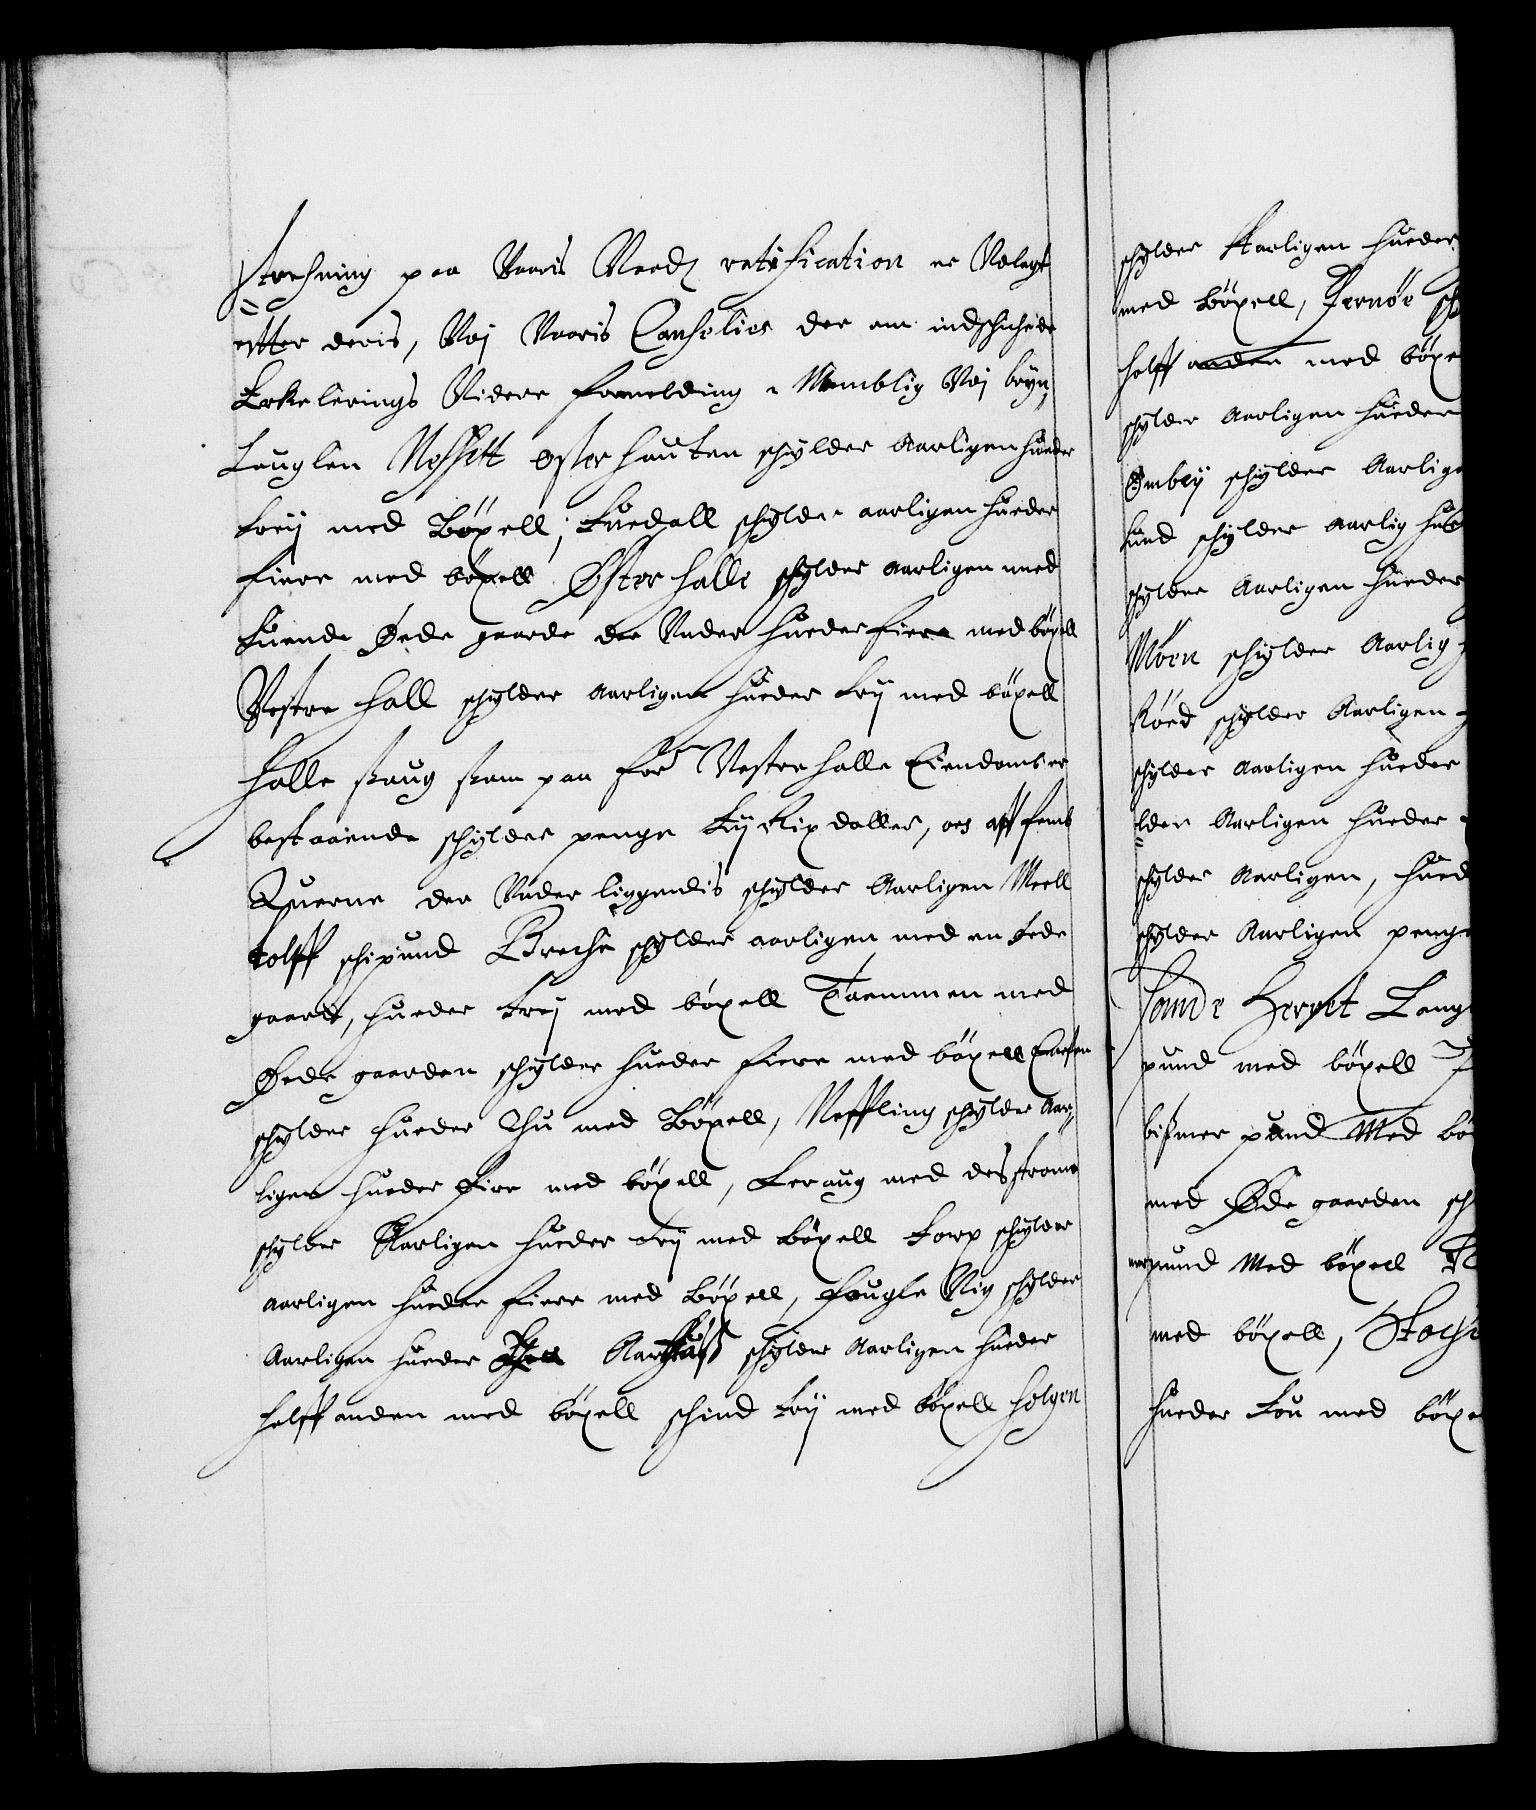 strechning paa Voris Naadz ratification er Vdlagt
etter deris, Udj Voris Cancelies der om indschichede
Erkelerings Videre formelding, Nemblig Udj bryn„
Lauglen Nessitt øster hauten schylder Aarligen huder
trij med Böxell; Furdall schylder aarligen huder
fiere med böxell Øster halle schylder aarligen med
tuende Øede gaarde der Under huder fiere med böxell
Vestre Hall schylder aarligen huder trij med böxell
Halle skaug som paa for Vestre halle Eiendomb er
bestaaende schylder penge trij Rix daller, oc aff femb
Querne der Under liggendis schylder Aarligen Meell
tolff schipund Breche schylder aarligen med en øde
gaard, huder trij med böxell Taemmen med
Øede gaarden schylder huder fiere med böxell
schylder huder Thu med Böxell, Neffling schylder Aar„
ligen huder fire med böxell, Leraug med des strome
schylder Aarligen huder trij med Böxell Torp schylder
aarligen huder fiere med Böxell, fougle Vig schylder
Aarligen huder schylder Aarligen huder
halff anden med böxell schind trij med böxell Helgen
schylder Aarligen huder
med Böxell, Jernöe
halff anden med böxe
schylder Aarligen huder
Ombey schylder Aarlige
lund schylder Aarlig hu
schylder Aarligen huder
Moen schylder Aarlig
Röed schylder Aarligen
schylder Aarligen huder
lder Aarligen huder
schylder Aarligen, hud
schylder Aarligen penge
Sande Herret Lang
pund med böxell
bißmer pund Med bö
med Øde gaarden sch
merpund Med böxell
med böxell,
huder tou med böxe